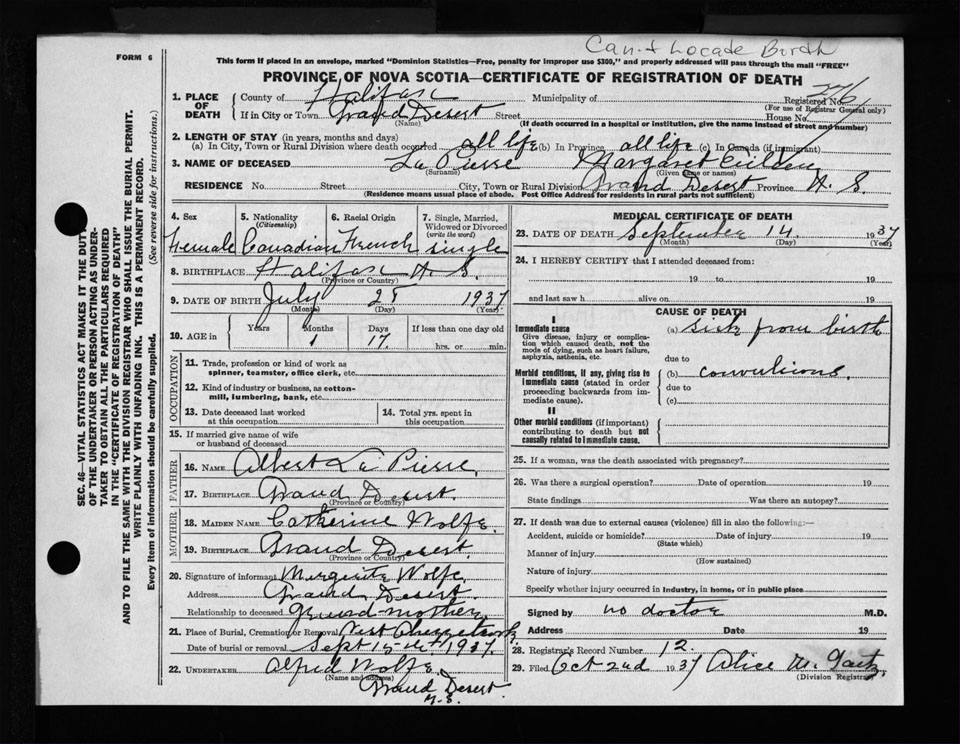 Can't Locade Birth
FORM 6
This form if placed in an envelope, marked "Dominion Statistics—Free, penalty for improper use $300," and properly addressed will pass through the mail "FREE"
PROVINCE OF NOVA SCOTIA—CERTIFICATE OF REGISTRATION OF DEATH
1. PLACE OF DEATH { County of Halifax Municipality of Registered No.
(For use of Registrar General only)
If in City or Town Grand Desert Street House No.
(Name) (If death occurred in a hospital or institution, give the name instead of street and number)
2. LENGTH OF STAY (in years, months and days)
(a) In City, Town or Rural Division where death occurred all life (b) In Province all life (c) In Canada (if immigrant)
3. NAME OF DECEASED La Pierre Margaret
(Surname) (Given name or names)
RESIDENCE No. Street City, Town or Rural Division Grand Desert Province N. S.
(Residence means usual place of abode. Post Office Address for residents in rural parts not sufficient)
4. Sex 5. Nationality (Citizenship) 6. Racial Origin 7. Single, Married, Widowed or Divorced (write the word)
Female Canadian French single
8. BIRTHPLACE Halifax N. S.
(Province or Country)
9. DATE OF BIRTH July 28 1937
(Month) (Day) (Year)
10. AGE in Years Months Days If less than one day old
1 17. hrs. or min.
OCCUPATION
11. Trade, profession or kind of work as spinner, teamster, office clerk, etc.
12. Kind of industry or business, as cotton-mill, lumbering, bank, etc.
13. Date deceased last worked at this occupation 14. Total yrs. spent in this occupation
15. If married give name of wife or husband of deceased
FATHER
16. NAME Albert La Pierre
17. BIRTHPLACE Grand Desert.
(Province or Country)
MOTHER
18. MAIDEN NAME Catherine Wolfe
19. BIRTHPLACE Grand Desert.
(Province or Country)
20. Signature of informant Marguerite Wolfe
Address Grand Desert.
Relationship to deceased Grand-mother
21. Place of Burial, Cremation or Removal West Chezzetcook
Date of burial or removal Sept 15th 1937.
22. UNDERTAKER Alfred Wolfe
(Name and address) Grand Desert.
N. S.
MEDICAL CERTIFICATE OF DEATH
23. DATE OF DEATH September 14. 1937
(Month) (Day) (Year)
24. I HEREBY CERTIFY that I attended deceased from:
19 to 19
and last saw h alive on 19
CAUSE OF DEATH
I
Immediate cause
Give disease, injury or complication which caused death, not the mode of dying, such as heart failure, asphyxia, asthenia, etc.
(a) sick from birth
due to
Morbid conditions, if any, giving rise to immediate cause (stated in order proceeding backwards from immediate cause).
(b) convulsions.
due to
(c)
II
Other morbid conditions (if important) contributing to death but not causally related to immediate cause.
25. If a woman, was the death associated with pregnancy?
26. Was there a surgical operation? Date of operation 19
State findings Was there an autopsy?
27. If death was due to external causes (violence) fill in also the following:—
Accident, suicide or homicide? Date of injury 19
(State which)
Manner of injury
(How sustained)
Nature of injury
Specify whether injury occurred in industry, in home, or in public place
Signed by no doctor M.D.
Address Date 19
28. Registrar's Record Number 12.
29. Filed Oct 2nd 1937 Alice M. Gaetz
(Division Registrar)
SEC. 46—VITAL STATISTICS ACT MAKES IT THE DUTY
OF THE UNDERTAKER OR PERSON ACTING AS UNDER-
TAKER TO OBTAIN ALL THE PARTICULARS REQUIRED
IN THE "CERTIFICATE OF REGISTRATION OF DEATH"
AND TO FILE THE SAME WITH THE DIVISION REGISTRAR WHO SHALL ISSUE THE BURIAL PERMIT.
WRITE PLAINLY WITH UNFADING INK. THIS IS A PERMANENT RECORD.
Every item of information should be carefully supplied. (See reverse side for instructions.)